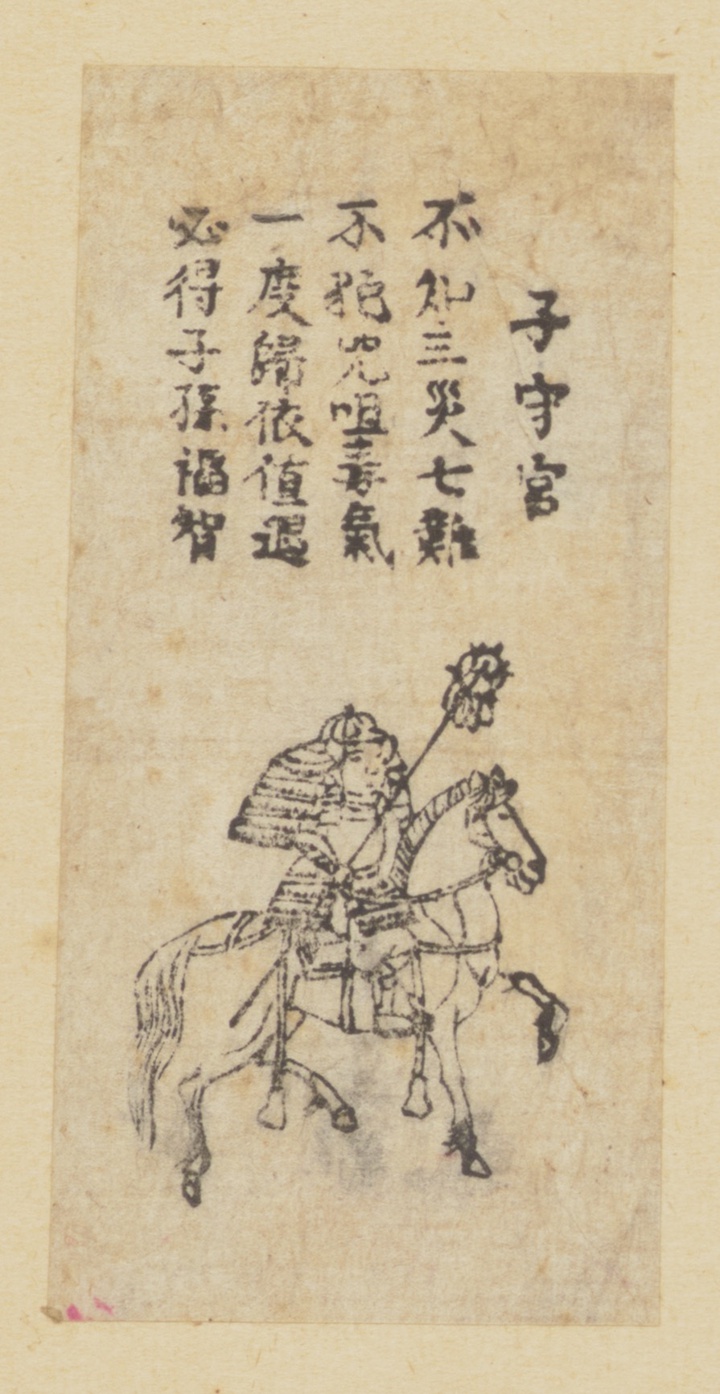 子守宮
不知三災七難
不犯咒咀毒氣
一度歸依値遇
必得子孫福智